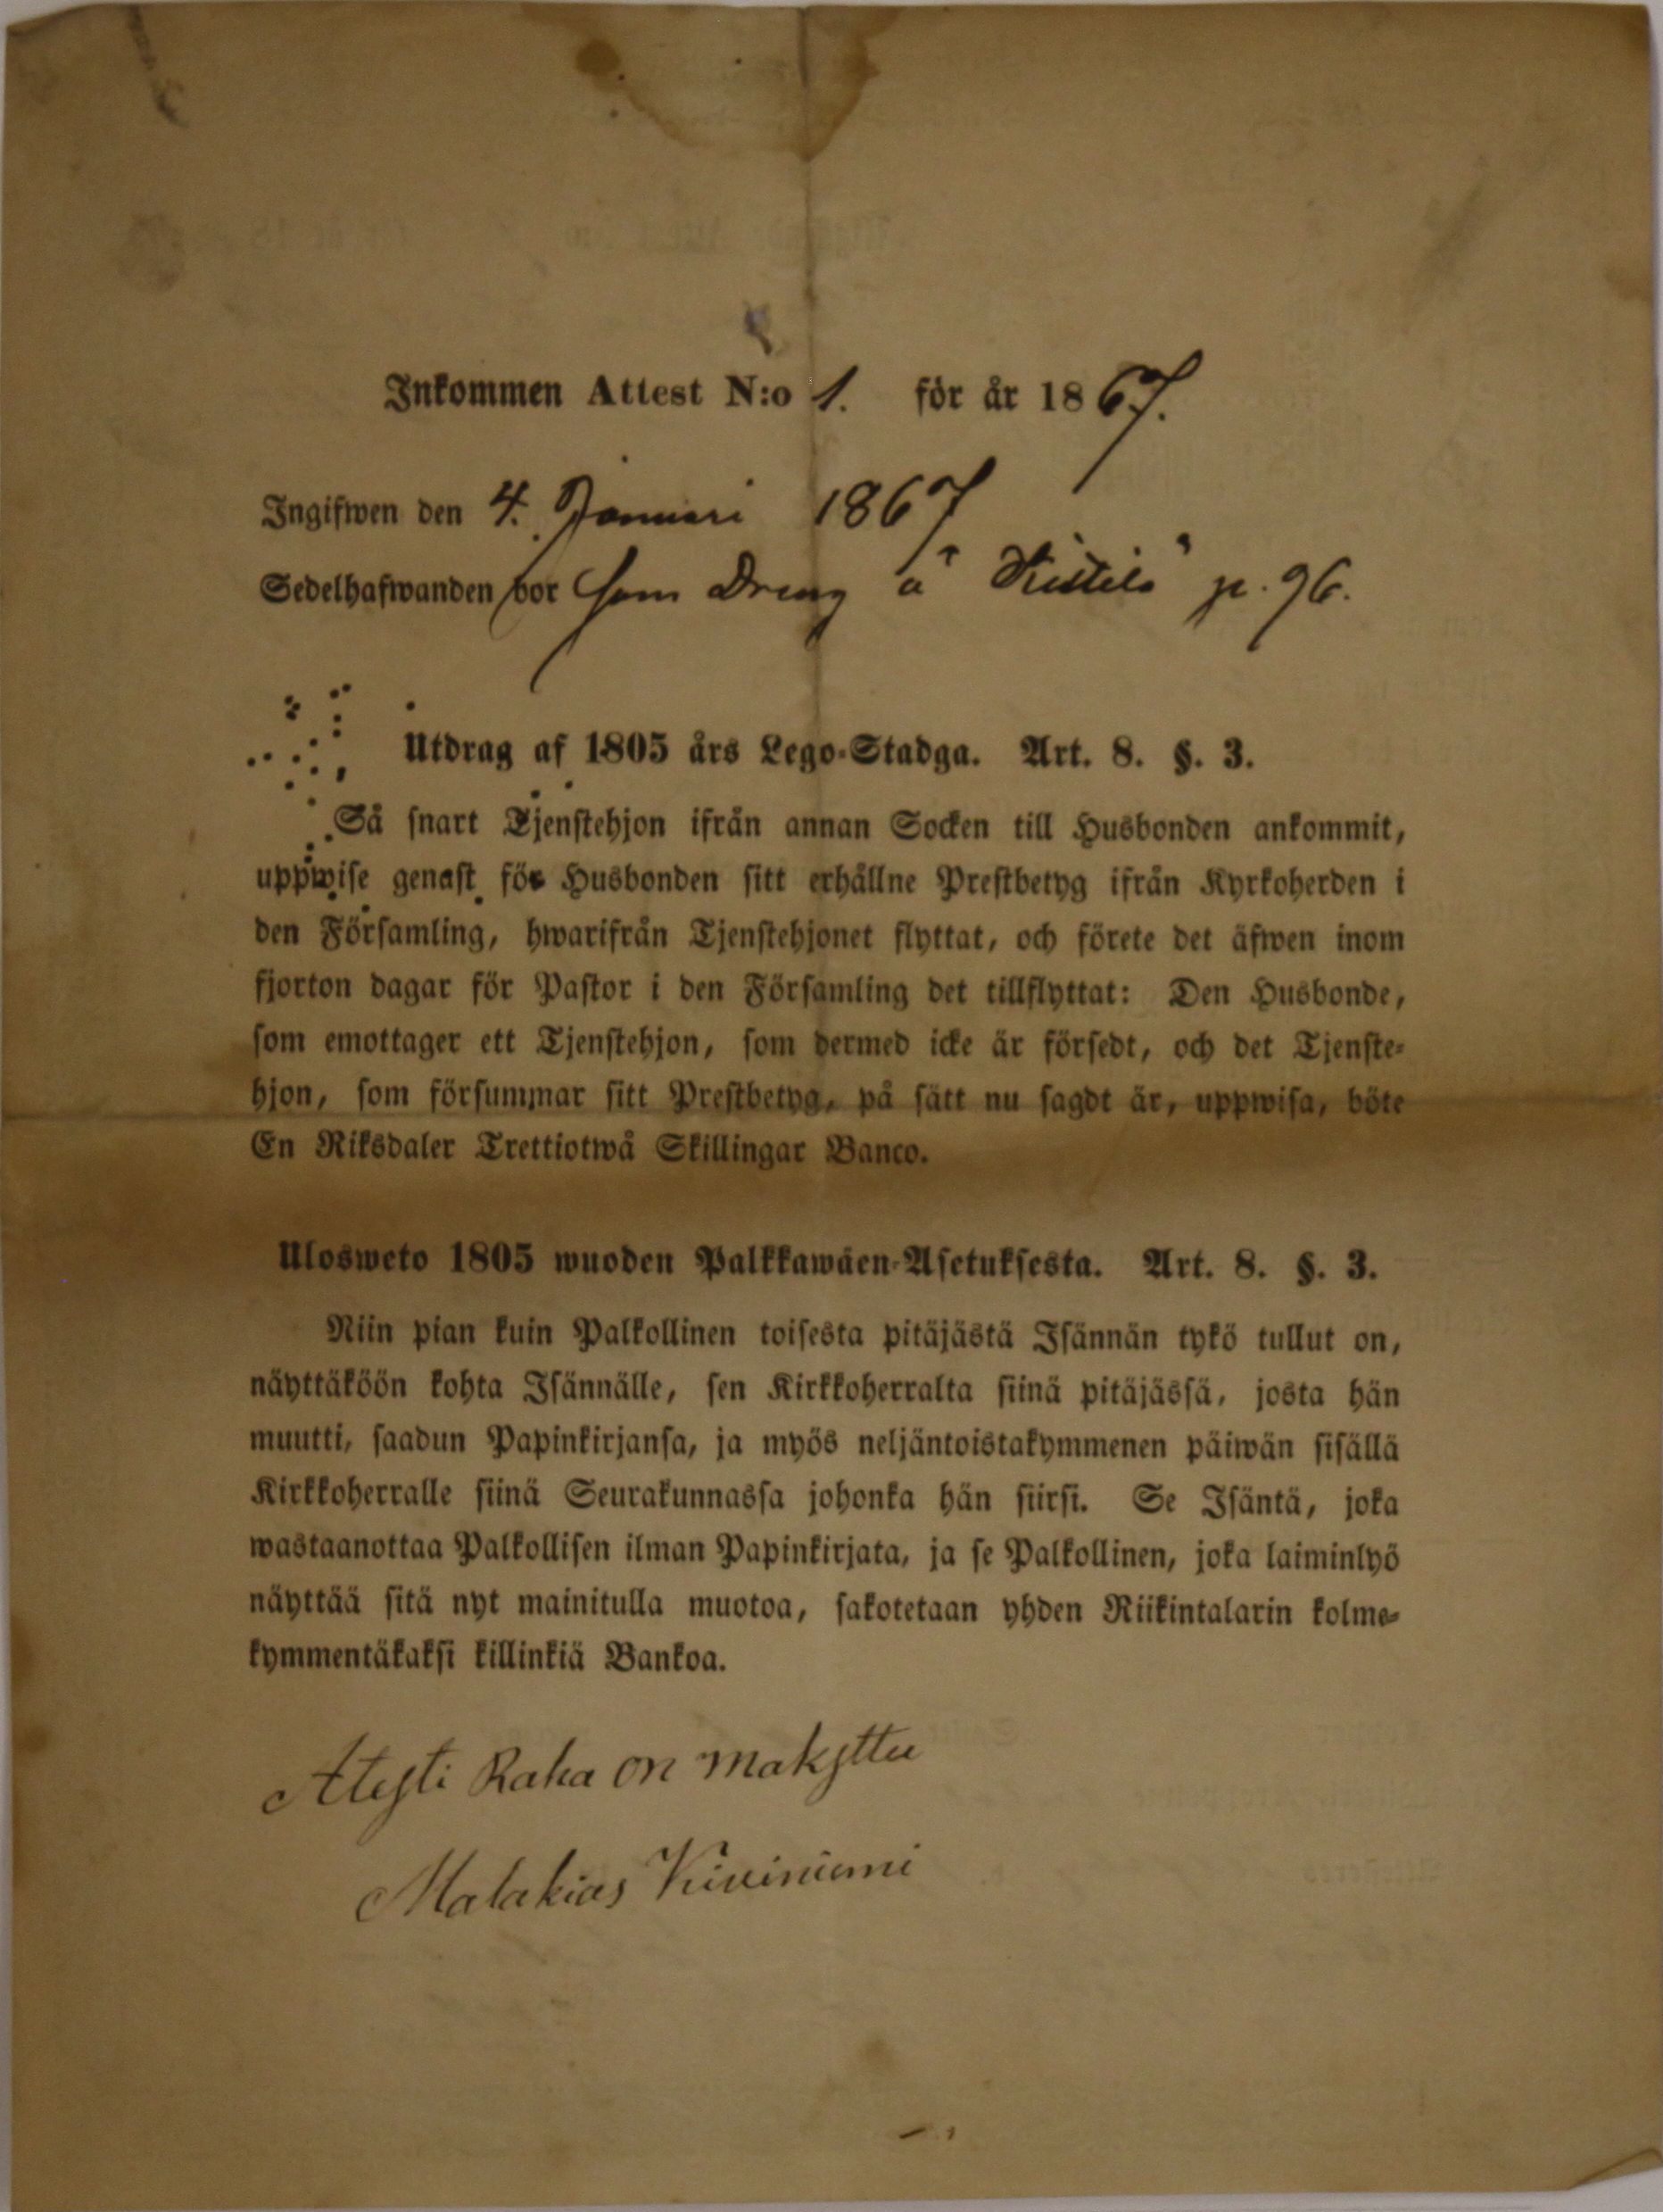 Inkommen Attest N:o 1. för år 1867.
Ingifwen den 4. Januari 1867
Sedelhafwanden bor som Dreng å p. 96.
Utdrag af 1805 års Lego-Stadga. Art. 8. §. 3.
Så snart Tjenstehjon ifrån annan Socken till Husbonden ankommit,
uppwise genast för Husbonden sitt erhållne Prestbetyg ifrån Kyrkoherden i
den Församling, hwarifrån Tjenstehjonet flyttat, och förete det äfwen inom
fjorton dagar för Pastor i den Församling det tillflyttat: Den Husbonde,
som emottager ett Tjenstehjon, som dermed icke är försedt, och det Tjenste-
hjon, som försummar sitt Prestbetyg, på sätt nu sagdt är, uppwisa, böte
En Riksdaler Trettiotwå Skillingar Banco.
Ulosweto 1805 wuoden Palkkawäen-Asetuksesta. Art. 8. §. 3.
Niin pian kuin Palkollinen toisesta pitäjästä Isännän tykö tullut on,
näyttäköön kohta Isännälle, sen Kirkkoherralta siinä pitäjässä, josta hän
muutti, saadun Papinkirjansa, ja myös neljäntoistakymmenen päiwän sisällä
Kirkkoherralle siinä Seurakunnassa johonka hän siirsi. Se Isäntä, joka
wastaanottaa Palkollisen ilman Papinkirjata, ja se Palkollinen, joka laiminlyö
näyttää sitä nyt mainitulla muotoa, sakotetaan yhden Riikintalarin kolme-
kymmentäkaksi killinkiä Bankoa.
Atesti Raha on maksttu
Malakias Kiviniemi